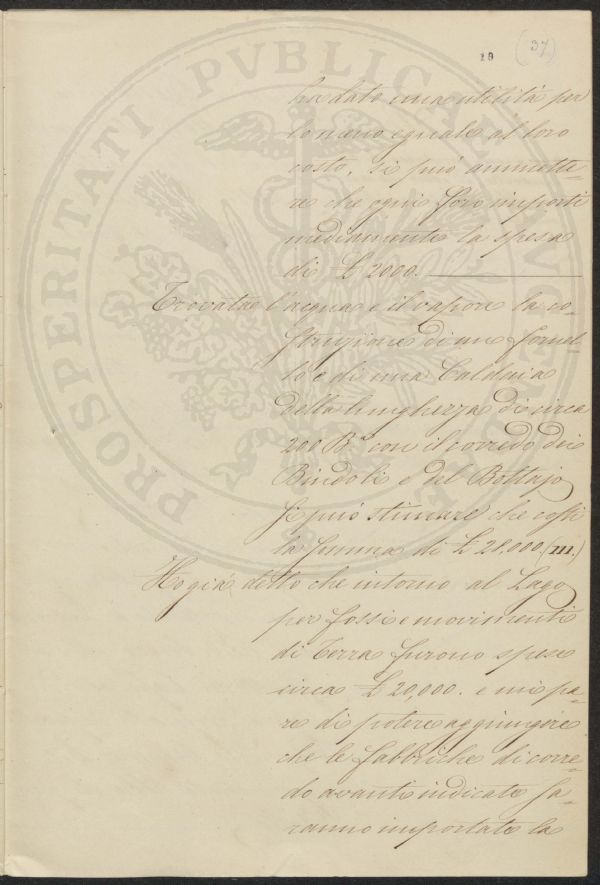 19 (37)
ha dato una utilità per
lo meno eguale al loro
costo, si può ammette-
re che ogni foro importi
mediamente la spesa
di £ 2000.
Trovata l'acqua e il vapore la co-
struzione di un fornel-
lo e di una Caldaia
della lunghezza di circa
200 B.a con il corredo dei
Bindoli e del Bottajo
si può stimare che costi
la somma di £ 28,000 (III.)
Ho già detto che intorno al Lago
per fossi e movimenti
di Terra furono spese
circa £ 20,000. e mi pa-
re di potere aggiungere
che le fabbriche di corre-
do avanti indicate sa-
ranno importate la
PROSPERITATI PVBLICAE AVGENDAE